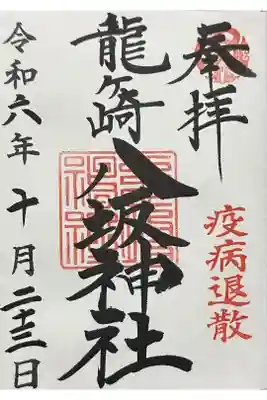 奉拝
疫病退散
龍ヶ崎
八坂神社
令和六年十月二十三日